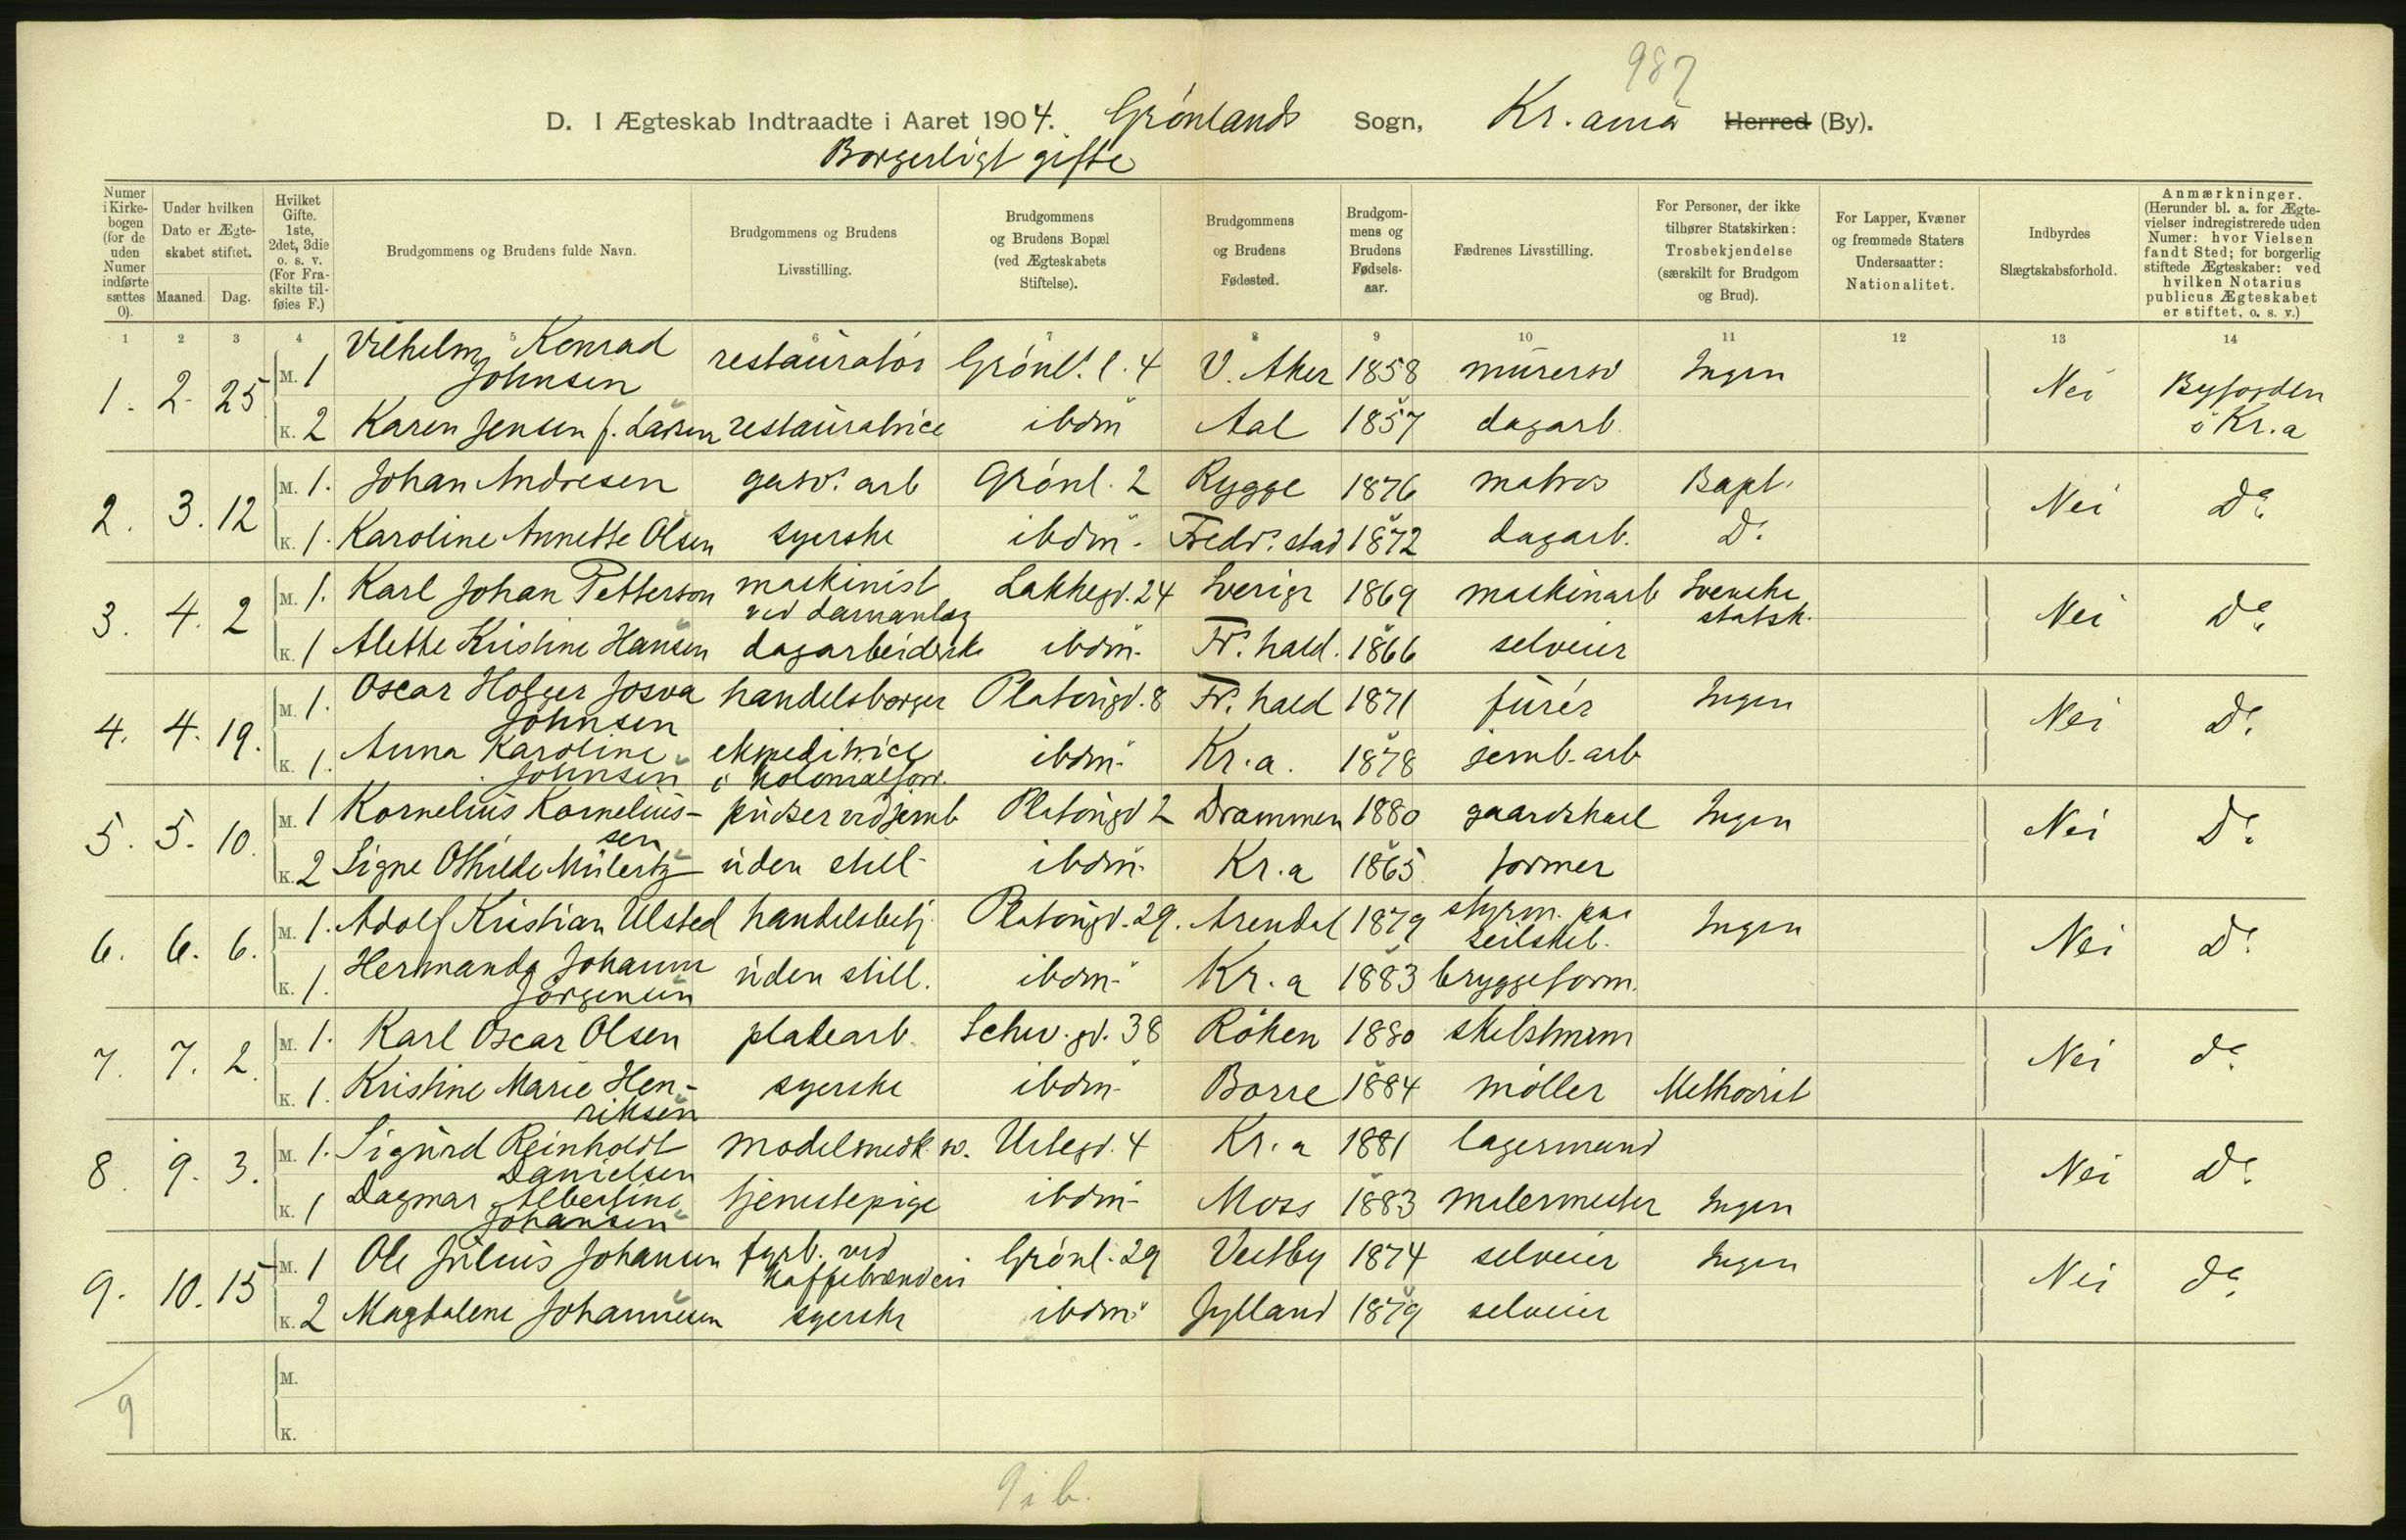 987
D. I Ægteskab Indtraadte i Aaret 1904. Grønlands Sogn, Kr.ania Herred (By).
Borgerligt gifte
Numer i Kirkebogen (for de uden Numer indførte sættes 0).
Under hvilken Dato er Ægteskabet stiftet.
Maaned. Dag.
Hvilket Gifte. 1ste, 2det, 3die o. s. v. (For Fraskilte tilføies F.)
Brudgommens og Brudens fulde Navn.
Brudgommens og Brudens Livsstilling.
Brudgommens og Brudens Bopæl (ved Ægteskabets Stiftelse).
Brudgommens og Brudens Fødested.
Brudgommens og Brudens Fødselsaar.
Fædrenes Livsstilling.
For Personer, der ikke tilhører Statskirken: Trosbekjendelse (særskilt for Brudgom og Brud).
For Lapper, Kvæner og fremmede Staters Undersaatter: Nationalitet.
Indbyrdes Slægtskabsforhold.
Anmærkninger. (Herunder bl. a. for Ægtevielser indregistrerede uden Numer: hvor Vielsen fandt Sted; for borgerlig stiftede Ægteskaber: ved hvilken Notarius publicus Ægteskabet er stiftet, o. s. v.)
1 2 3 4 5 6 7 8 9 10 11 12 13 14
1. 2. 25 M. 1 Vilhelm Konrad Johnsen restauratør Grønl. l. 4 V. Aker 1858 murersv Ingen Nei Byfogden i Kr.a
K. 2 Karen Jensen f. Larsen restauratrice ibdm Aal 1857 dagarb.
2. 3. 12 M. 1. Johan Andresen gasv. arb Grønl. 2 Rygge 1876 matros Bapt. Nei Do
K. 1. Karoline Annette Olsen syerske ibdm. Fredr. stad 1872 dagarb. Do
3. 4. 2 M. 1. Karl Johan Petterson maskinist Lakkegd. 24 Sverige 1869 maskinarb Svenske statsk. Nei Do
K. 1 Alette Kristine Hansen dagarbeiderske ibdm. Fr. hald. 1866 selveier
4. 4. 19. M. 1. Oscar Holger Josva Johnsen handelsborger Platougd. 8 Fr. hald 1871 furér Ingen Nei Do
K. 1. Anna Karoline Johnsen ekspeditrice i Kolonialforr. ibdm. Kr.a. 1878 jernb. arb
5. 5. 10. M. 1 Kornelius Korneliussen pudser ved jernb Platougd 2 Drammen 1880 gaardskarl Ingen Nei Do
K. 2 Signe Othilde Mülertz uden still. ibdm. Kr.a 1865 former
6. 6. 6. M. 1. Adolf Kristian Ulsted handelsbetj. Platougd. 29. Arendal 1879 styrm. paa seilskib. Ingen Nei Do
K. 1. Hermanda Johanne Jørgensen uden still. ibdm. Kr.a 1883 bryggeform.
7. 7. 2. M. 1. Karl Oscar Olsen pladearb. Schw. gd. 38 Røken 1880 skibstmrm Nei do
K. 1. Kristine Marie Henriksen syerske ibdm. Borre 1884 møller Methodist
8. 9. 3. M. 1. Sigurd Reinholdt Danielsen modelsnedk. sv. Urtegd. 4 Kr.a 1881 lagermand Nei Do
K. 1 Dagmar Albertine Johansen tjenestepige ibdm. Moss 1883 malermester Ingen
9. 10. 15 M. 1 Ole Julius Johansen fyrb. ved kaffebrænderi Grønl. 29 Vestby 1874 selveier Ingen Nei do
K. 2 Magdalene Johannesen syerske ibdm. Jylland 1879 selveier
9 M.
K.
9 i b.